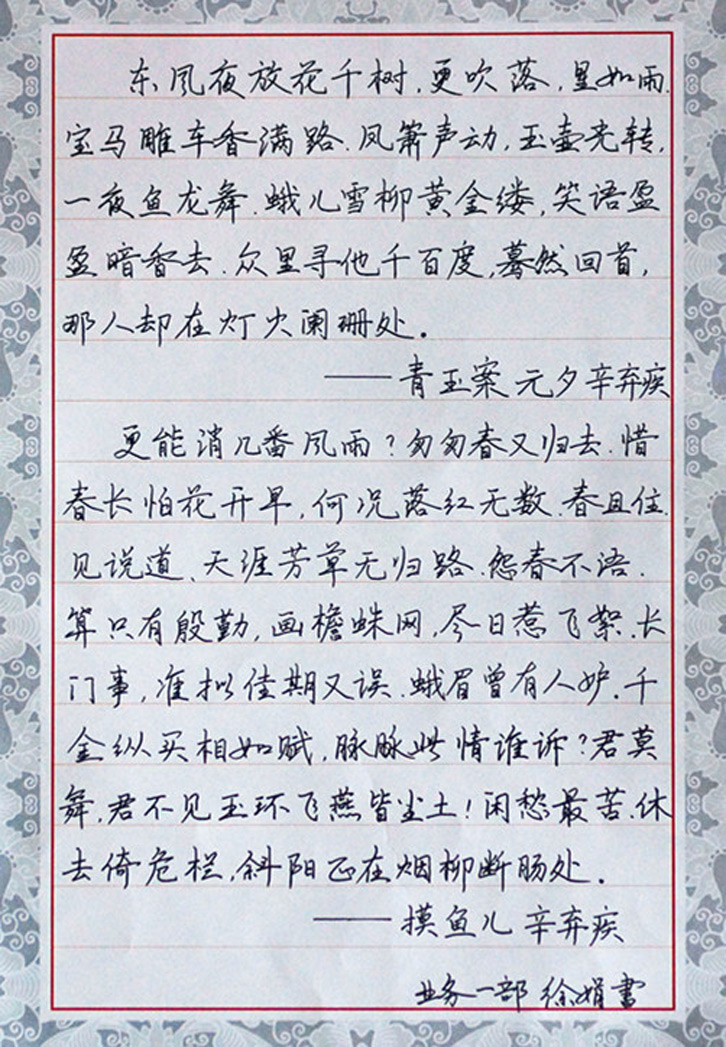 东风夜放花千树,更吹落,星如雨.
宝马雕车香满路.凤箫声动,玉壶光转,
一夜鱼龙舞.蛾儿雪柳黄金缕,笑语盈
盈暗香去.众里寻他千百度,蓦然回首,
那人却在灯火阑珊处。
——青玉案 元夕 辛弃疾
更能消几番风雨?匆匆春又归去.惜
春长怕花开早,何况落红无数.春且住.
见说道、天涯芳草无归路.怨春不语.
算只有殷勤,画檐蛛网,尽日惹飞絮.长
门事,准拟佳期又误.蛾眉曾有人妒.千
金纵买相如赋,脉脉此情谁诉?君莫
舞,君不见玉环飞燕皆尘土!闲愁最苦.休
去倚危栏,斜阳正在烟柳断肠处。
——摸鱼儿 辛弃疾
业务一部 徐娟书